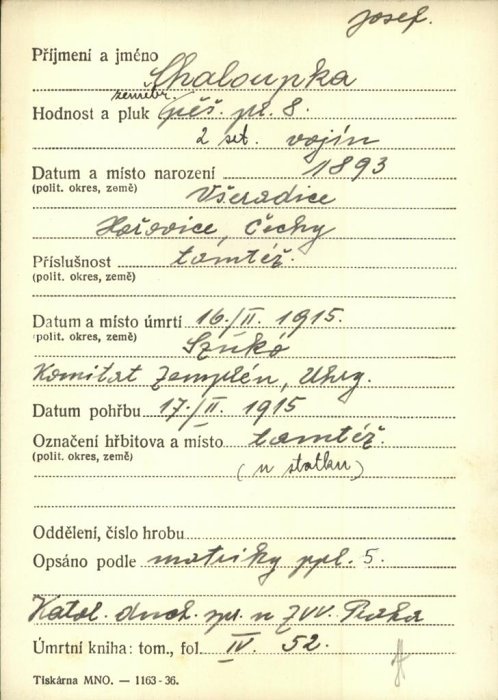 Josef.
Příjmení a jméno Chaloupka
zeměbr.
Hodnost a pluk pěš. pl. 8.
2 set. vojín
Datum a místo narození 1893
(polit. okres, země) Všeradice
Hořovice, Čechy
Příslušnost tamtéž.
(polit. okres, země)
Datum a místo úmrtí 16./II. 1915.
(polit. okres, země) Szúkó
Komitat Zemplén, Uhry.
Datum pohřbu 17./II. 1915
Označení hřbitova a místo tamtéž.
(polit. okres, země) (u statku)
Oddělení, číslo hrobu
Opsáno podle matriky ppl. 5.
Katol. duch. spr. u ZVV. Praha
Úmrtní kniha: tom., fol. IV. 52.
Tiskárna MNO. — 1163-36.